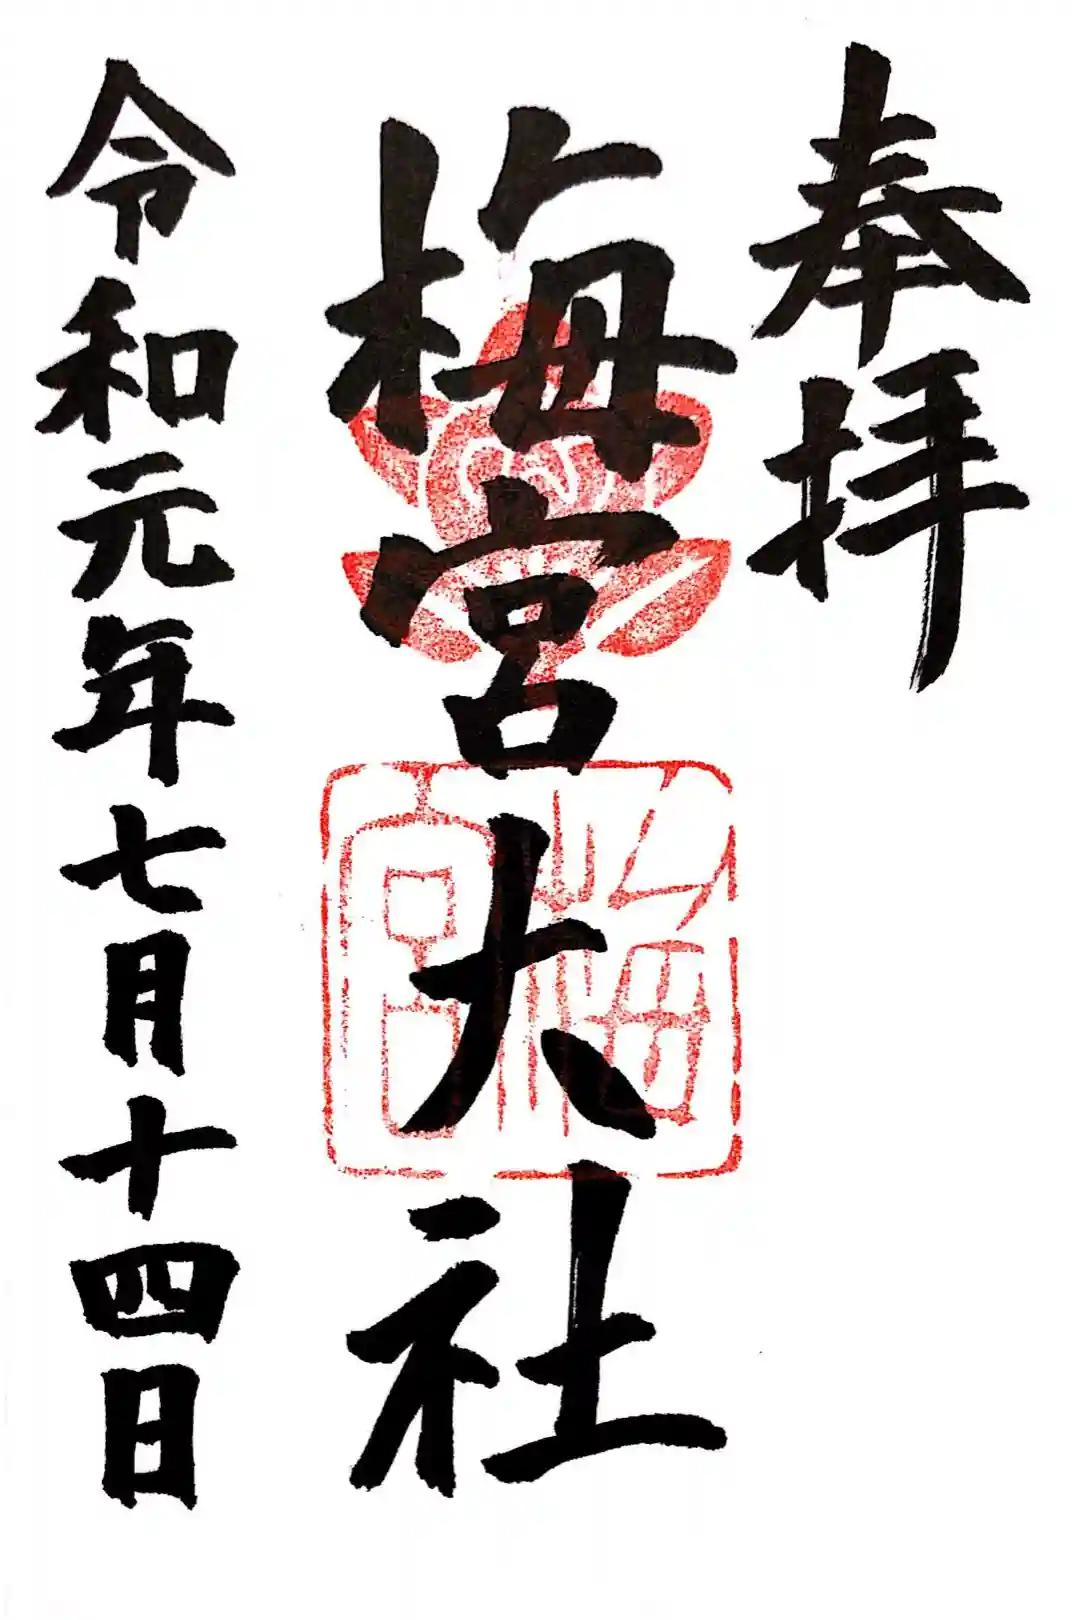 奉拝
梅宮大社
梅宮
令和元年七月十四日